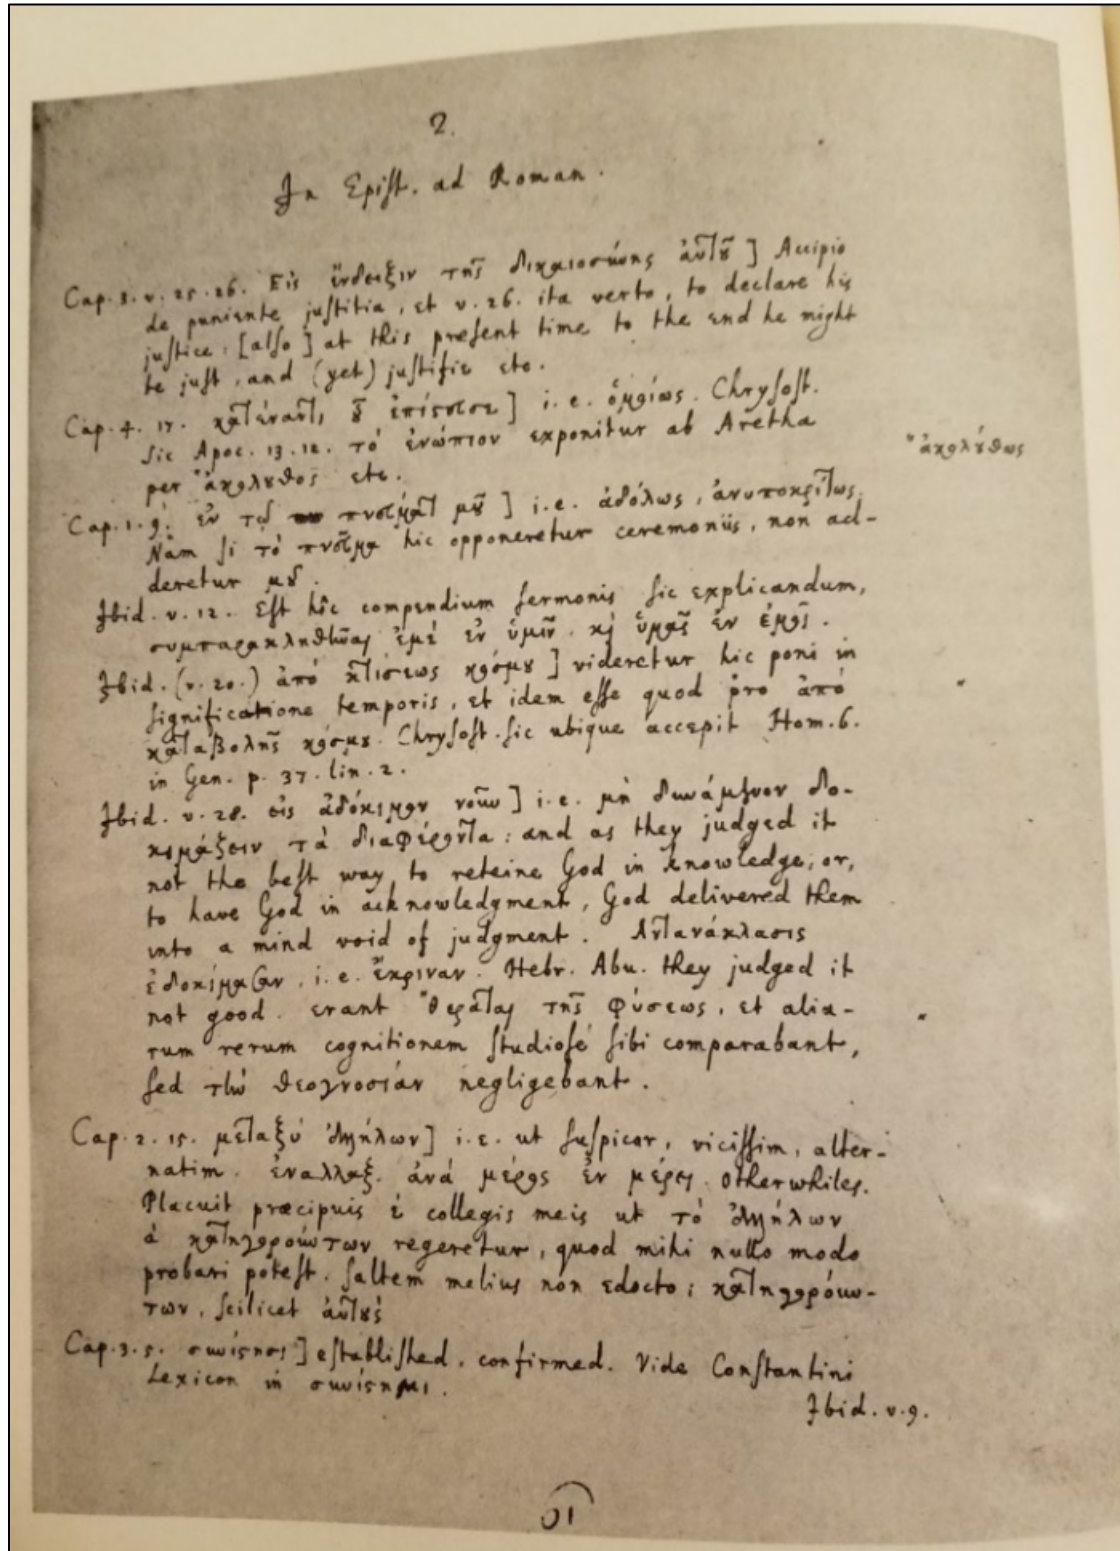 2.
In Epist. ad Roman.
Cap. 3. v. 25. 26. Εἰς ἔνδειξιν τῆς δικαιοσύνης αὐτοῦ ] Accipio
de puniente justitia, et v. 26. ita verto, to declare his
justice, [also] at this present time to the end he might
be just, and (yet) justifie etc.
Cap. 4. 17. κατέναντι οὗ ἐπίστευσε ] i.e. ὁμοίως. Chrysost.
sic Apoc. 13. 12. τὸ ἐνώπιον exponitur ab Aretha
"ἀκολούθως
per "ἀκόλουθος etc.
Cap. 1. 9. ἐν τῷ πνεύματί μου ] i.e. ἀδόλως, ἀνυποκρίτως.
Nam si τὸ πνεῦμα hic opponeretur ceremoniis, non ad-
deretur μου.
Ibid. v. 12. Est hîc compendium sermonis sic explicandum,
συμπαρακληθῆναι ἐμὲ ἐν ὑμῖν. καὶ ὑμᾶς ἐν ἐμοί.
Ibid. (v. 20.) ἀπὸ κτίσεως κόσμου ] videretur hic poni in
significatione temporis, et idem esse quod pro ἀπὸ
καταβολῆς κόσμου. Chrysost. sic ubique accepit Hom. 6.
in Gen. p. 37. lin. 2.
Ibid. v. 28. εἰς ἀδόκιμον νοῦν ] i.e. μὴ δυνάμενον δο-
κιμάζειν τὰ διαφέροντα : and as they judged it
not the best way to reteine God in knowledge, or,
to have God in acknowledgment, God delivered them
into a mind void of judgment. Ἀντανάκλασις
ἐδοκίμασαν, i.e. ἔκριναν. Hebr. Abu. they judged it
not good. erant "θεραταὶ τῆς φύσεως, et alia-
rum rerum cognitionem studiosé sibi comparabant,
sed τὴν θεογνοσίαν negligebant.
Cap. 2. 15. μεταξὺ ἀλλήλων ] i.e. ut suspicor, vicissim, alter-
natim. ἐναλλαξ. ἀνὰ μέρος ἐν μέρει. Otherwhiles.
Placuit præcipuis è collegis meis ut τὸ ἀλλήλων
à κατηγορούντων regeretur, quod mihi nullo modo
probari potest. saltem melius non edocto ; κατηγορούν-
των, scilicet αὐτούς
Cap. 3. 5. συνίστησι ] established. confirmed. Vide Constantini
Lexicon in συνίστημι.
Ibid. v. 9.